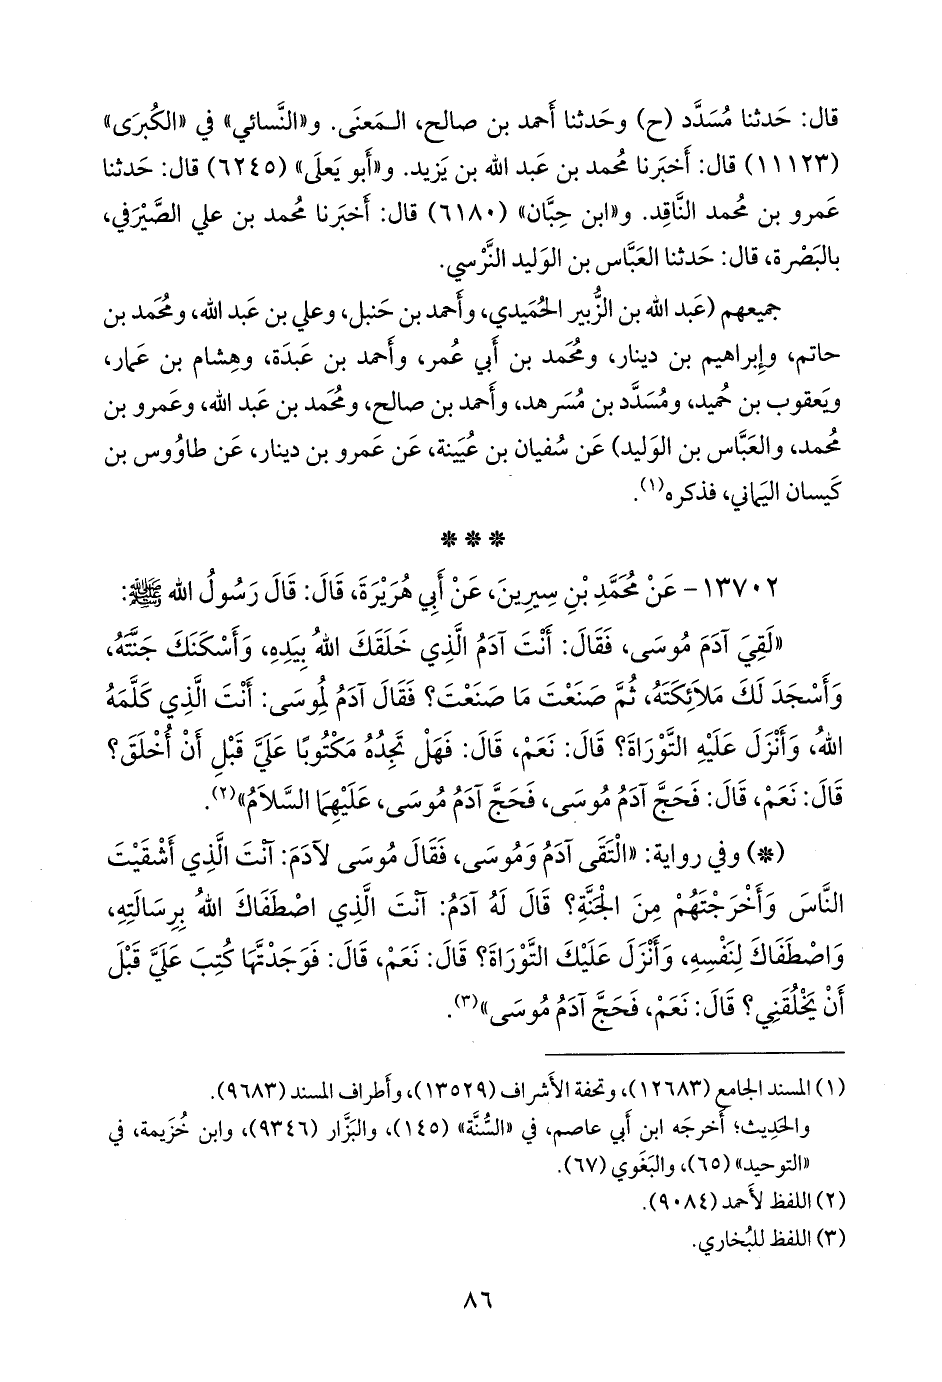 قال: حَدثنا مُسَدَّد (ح) وحَدثنا أَحمد بن صالح، المَعنَى. و«النَّسائي» في «الكُبرَى»
(١١١٢٣) قال: أَخبَرنا مُحمد بن عَبد الله بن يَزيد. و«أَبو يَعلَى» (٦٢٤٥) قال: حَدثنا
عَمرو بن مُحمد النَّاقِد. و«ابن حِبَّان» (٦١٨٠) قال: أَخبَرنا مُحمد بن علي الصَّيْرَفي،
بالبَصْرة، قال: حَدثنا العَبَّاس بن الوَليد النَّرْسي.
جميعهم (عَبد الله بن الزُّبير الحُمَيدي، وأَحمد بن حَنبل، وعلي بن عَبد الله، ومُحمد بن
حاتم، وإِبراهيم بن دينار، ومُحمد بن أَبي عُمر، وأَحمد بن عَبدَة، وهِشام بن عَمار،
ويَعقوب بن حُميد، ومُسَدَّد بن مُسَرهَد، وأَحمد بن صالح، ومُحمد بن عَبد الله، وعَمرو بن
مُحمد، والعَبَّاس بن الوَليد) عَن سُفيان بن عُيَينة، عَن عَمرو بن دينار، عَن طاوُوس بن
كَيسان اليَماني، فذكره(١).
* * *
١٣٧٠٢- عَنْ مُحَمَّدِ بْنِ سِيرِينَ، عَنْ أَبِي هُرَيْرَةَ، قَالَ: قَالَ رَسُولُ الله ﷺ:
«لَقِيَ آدَمَ مُوسَى، فَقَالَ: أَنْتَ آدَمُ الَّذِي خَلَقَكَ اللهُ بِيَدِهِ، وَأَسْكَنَكَ جَنَّتَهُ،
وَأَسْجَدَ لَكَ مَلاَئِكَتَهُ، ثُمَّ صَنَعْتَ مَا صَنَعْتَ؟ فَقَالَ آدَمُ لِمُوسَى: أَنْتَ الَّذِي كَلَّمَهُ
اللهُ، وَأَنْزَلَ عَلَيْهِ التَّوْرَاةَ؟ قَالَ: نَعَمْ، قَالَ: فَهَلْ تَجِدُهُ مَكْتُوبًا عَلَيَّ قَبْلِ أَنْ أُخْلَقَ؟
قَالَ: نَعَمْ، قَالَ: فَحَجَّ آدَمُ مُوسَى، فَحَجَّ آدَمُ مُوسَى، عَلَيْهِمَا السَّلاَمُ»(٢).
(*) وفي رواية: «الْتَقَى آدَمُ وَمُوسَى، فَقَالَ مُوسَى لآدَمَ: آنْتَ الَّذِي أَشْقَيْتَ
النَّاسَ وَأَخْرَجْتَهُمْ مِنَ الْجَنَّةِ؟ قَالَ لَهُ آدَمُ: آنْتَ الَّذِي اصْطَفَاكَ اللهُ بِرِسَالَتِهِ،
وَاصْطَفَاكَ لِنَفْسِهِ، وَأَنْزَلَ عَلَيْكَ التَّوْرَاةَ؟ قَالَ: نَعَمْ، قَالَ: فَوَجَدْتَّهَا كُتِبَ عَلَيَّ قَبْلَ
أَنْ يَخْلُقَنِي؟ قَالَ: نَعَمْ، فَحَجَّ آدَمُ مُوسَى»(٣).
(١) المسند الجامع (١٢٦٨٣)، وتحفة الأشراف (١٣٥٢٩)، وأَطراف المسند (٩٦٨٣).
والحَدِيث؛ أَخرجَه ابن أَبي عاصم، في «السُّنَّة» (١٤٥)، والبَزَّار (٩٣٤٦)، وابن خُزَيمة، في
«التوحيد» (٦٥)، والبَغَوي (٦٧).
(٢) اللفظ لأَحمد (٩٠٨٤).
(٣) اللفظ للبُخاري.
٨٦